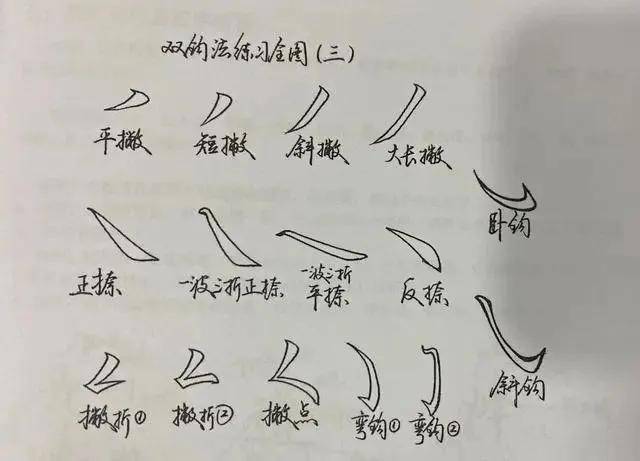 双钩法练习全图(三)
平撇 短撇 斜撇 大长撇
卧钩
正捺 一波三折正捺 一波三折平捺 反捺
斜钩
撇折① 撇折② 撇点 弯钩① 弯钩②